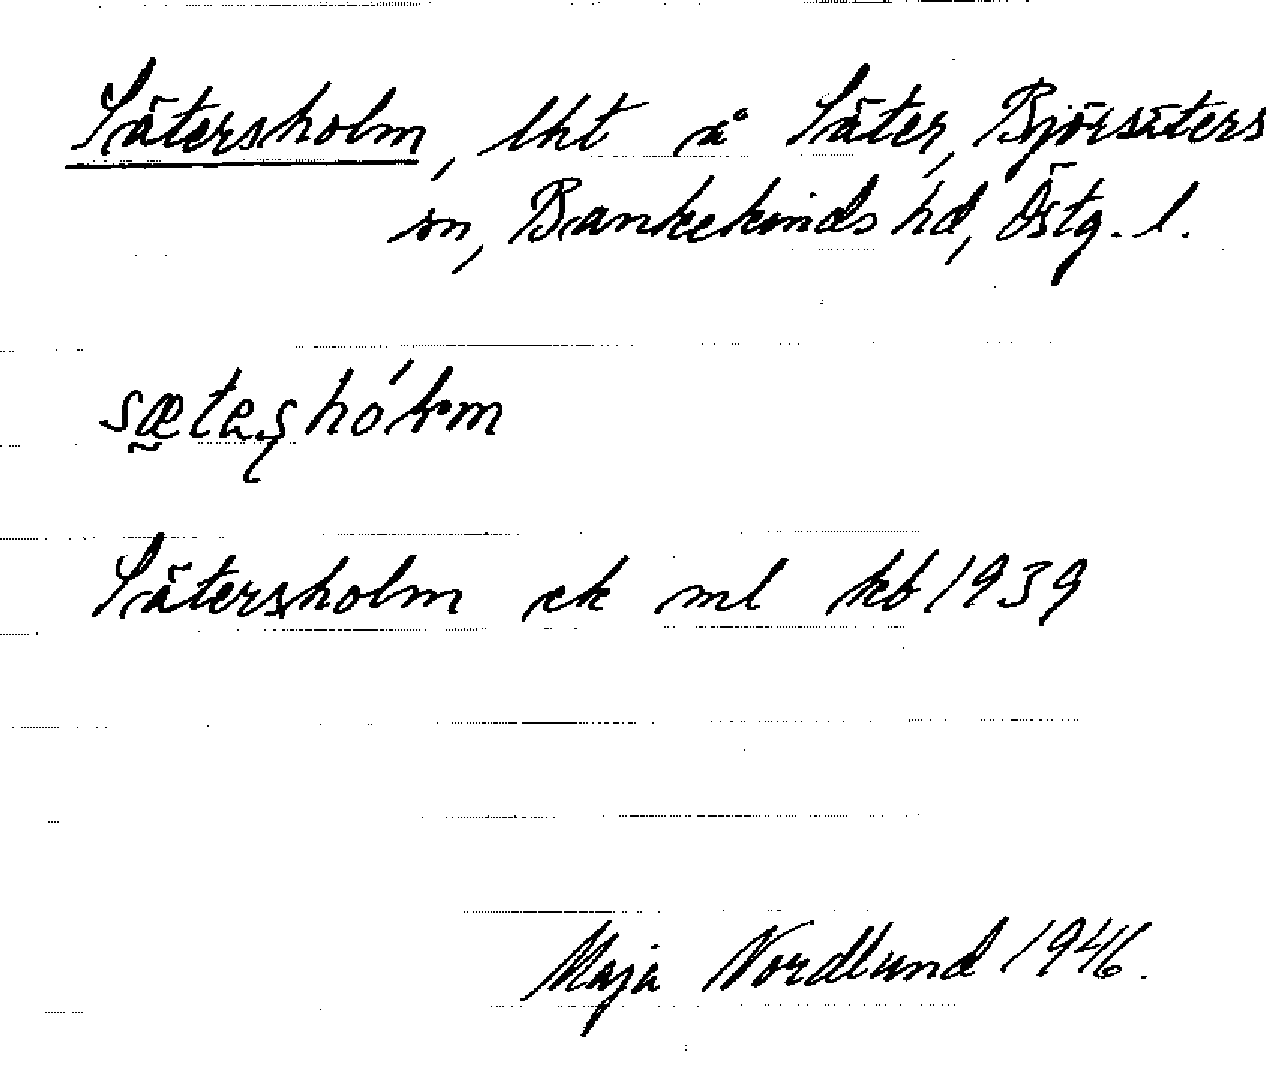 Sätersholm, lht å Säter, Björsäters
sn, Bankekinds hd, Östg. l.
Sätersholm ek ml kb 1939
Maja Nordlund 1946.